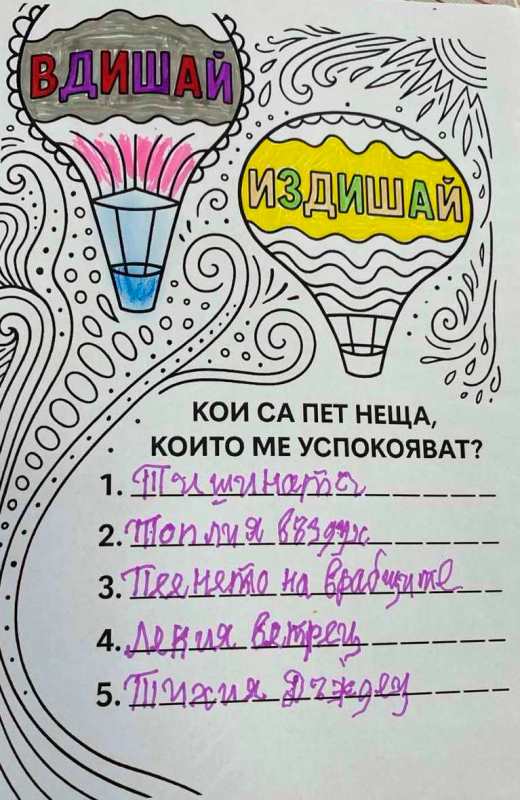 ВДИШАЙ
ИЗДИШАЙ
КОИ СА ПЕТ НЕЩА,
КОИТО МЕ УСПОКОЯВАТ?
1. Тишината
2. Топлия въздух
3. Пеенето на врабците
4. Лекия ветрец
5. Тихия Дъждец